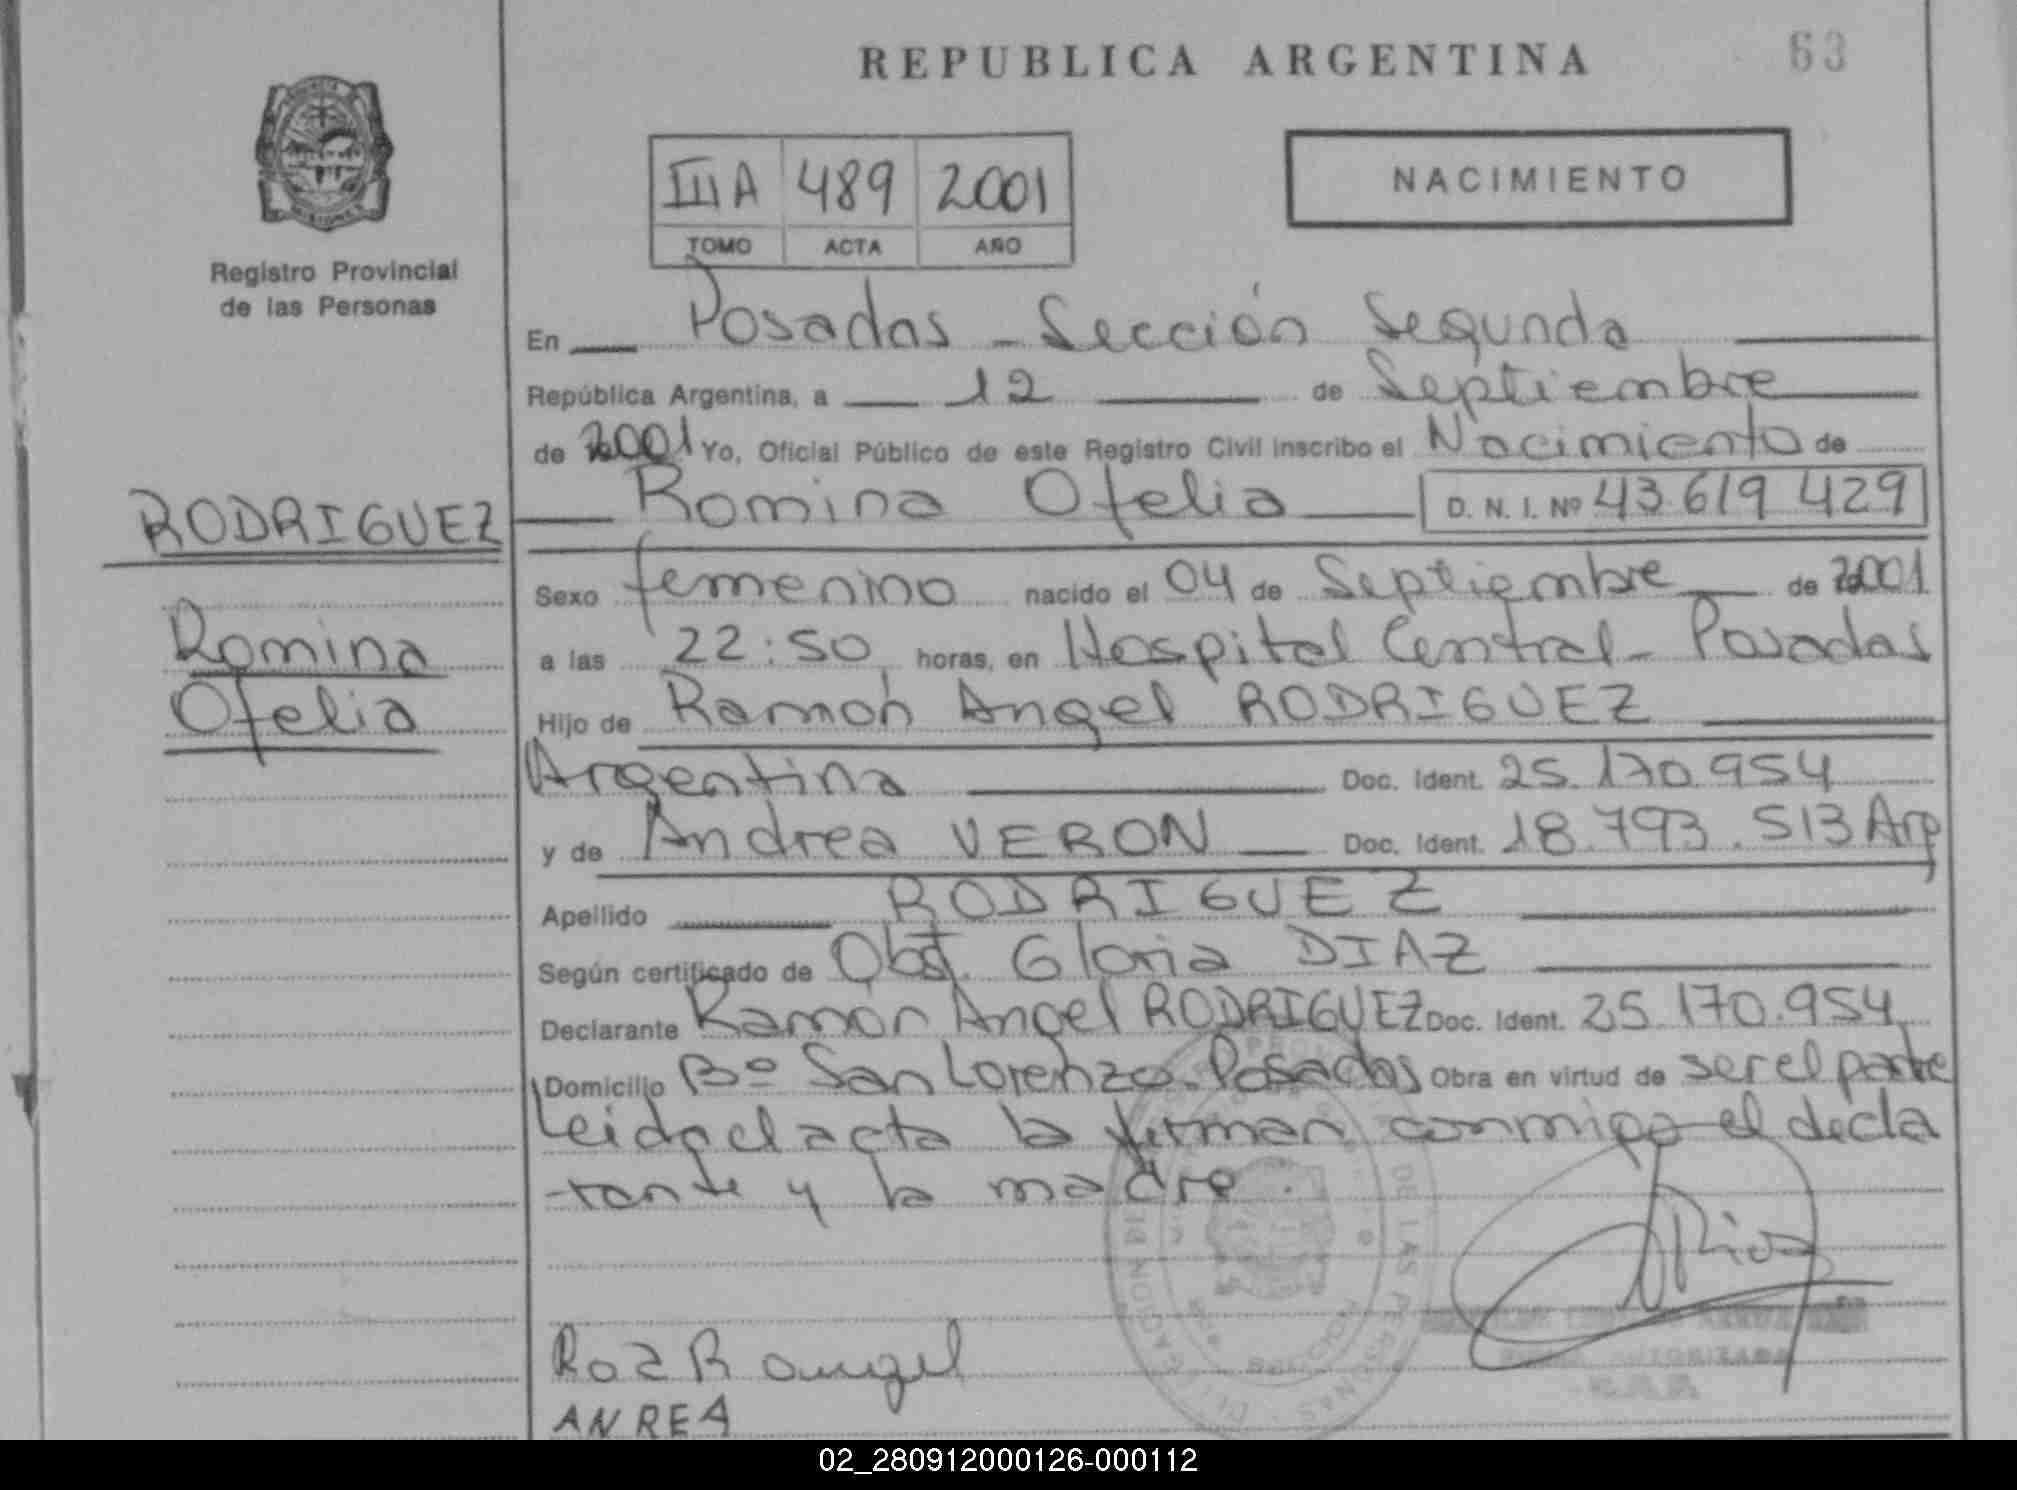 REPUBLICA ARGENTINA
63
PROVINCIA DE
MISIONES
Registro Provincial
de las Personas
III A 489 2001
TOMO ACTA AÑO
NACIMIENTO
En Posadas - Sección Segunda
República Argentina, a 12 de Septiembre
de 2001 Yo, Oficial Público de este Registro Civil inscribo el Nacimiento de
RODRIGUEZ
Romina Ofelia D. N. I. Nº 43.619 429
Romina
Ofelia
Sexo femenino nacido el 04 de Septiembre de 2001
a las 22:50 horas, en Hospital Central - Posadas
Hijo de Ramón Angel RODRIGUEZ
Argentina Doc. Ident. 25.170.954
y de Andrea VERON Doc. Ident. 18.793.513 Arg
Apellido RODRIGUEZ
Según certificado de Obst. Gloria DIAZ
Declarante Ramón Angel RODRIGUEZ Doc. Ident. 25.170.954
Domicilio Bº San Lorenzo - Posadas Obra en virtud de ser el padre
Leida el acta la firman conmigo el decla
-rante y la madre.
DE LAS PERSONAS
Rios
AUTORIZADA
Roz R angel
ANREA
02_280912000126-000112